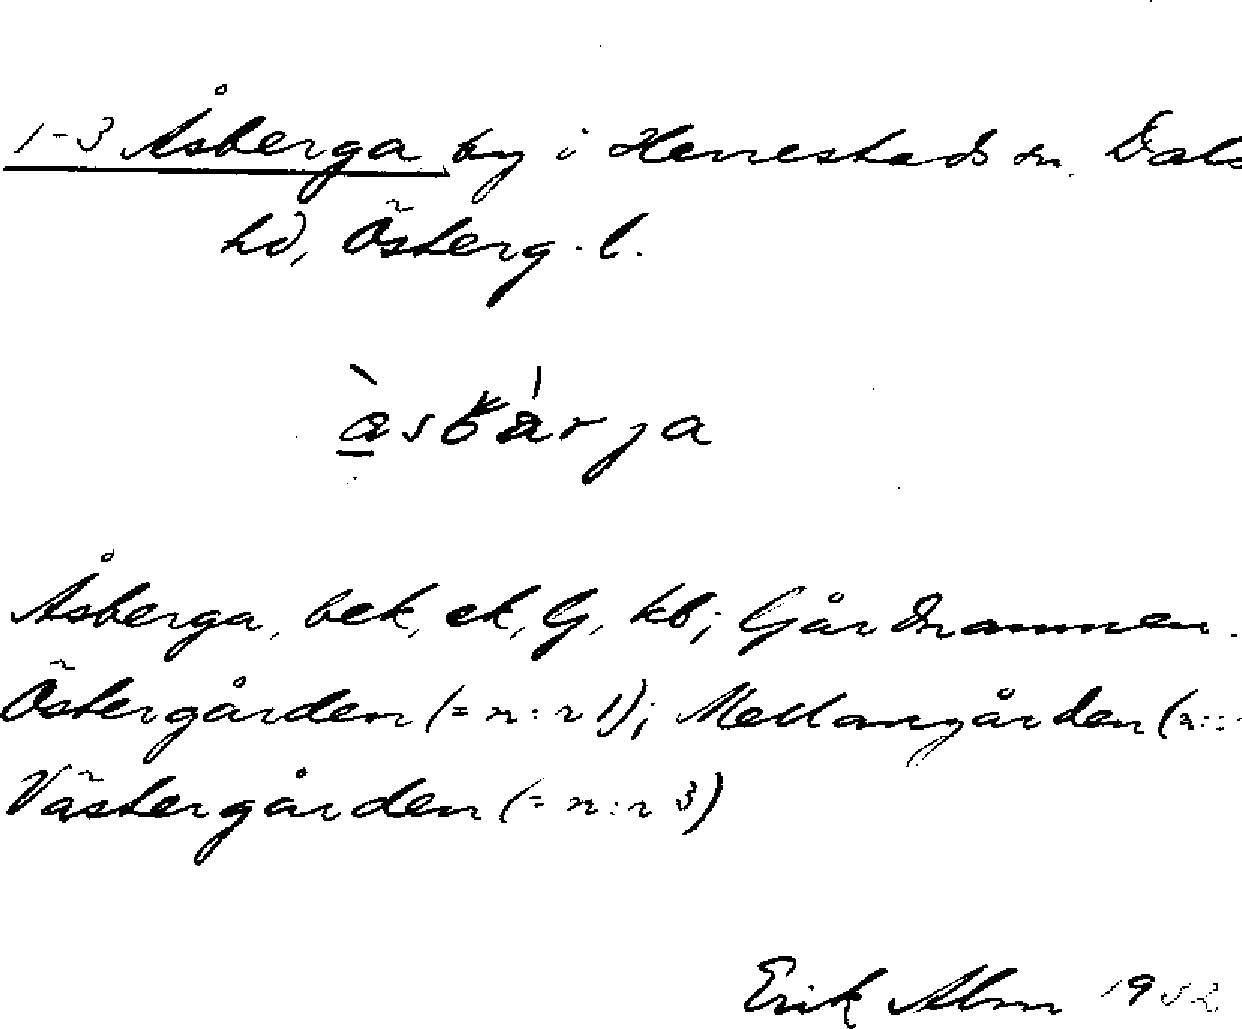 1-3 Åsberga by i Herrestads sn. Dals
hd, Österg. l.
Åsberga, bek, ek, G, kb; Gårdnamnen.
Östergården (= n:r 1); Mellangården (n:r
Västergården (= n:r 3)
Erik Alm 1932